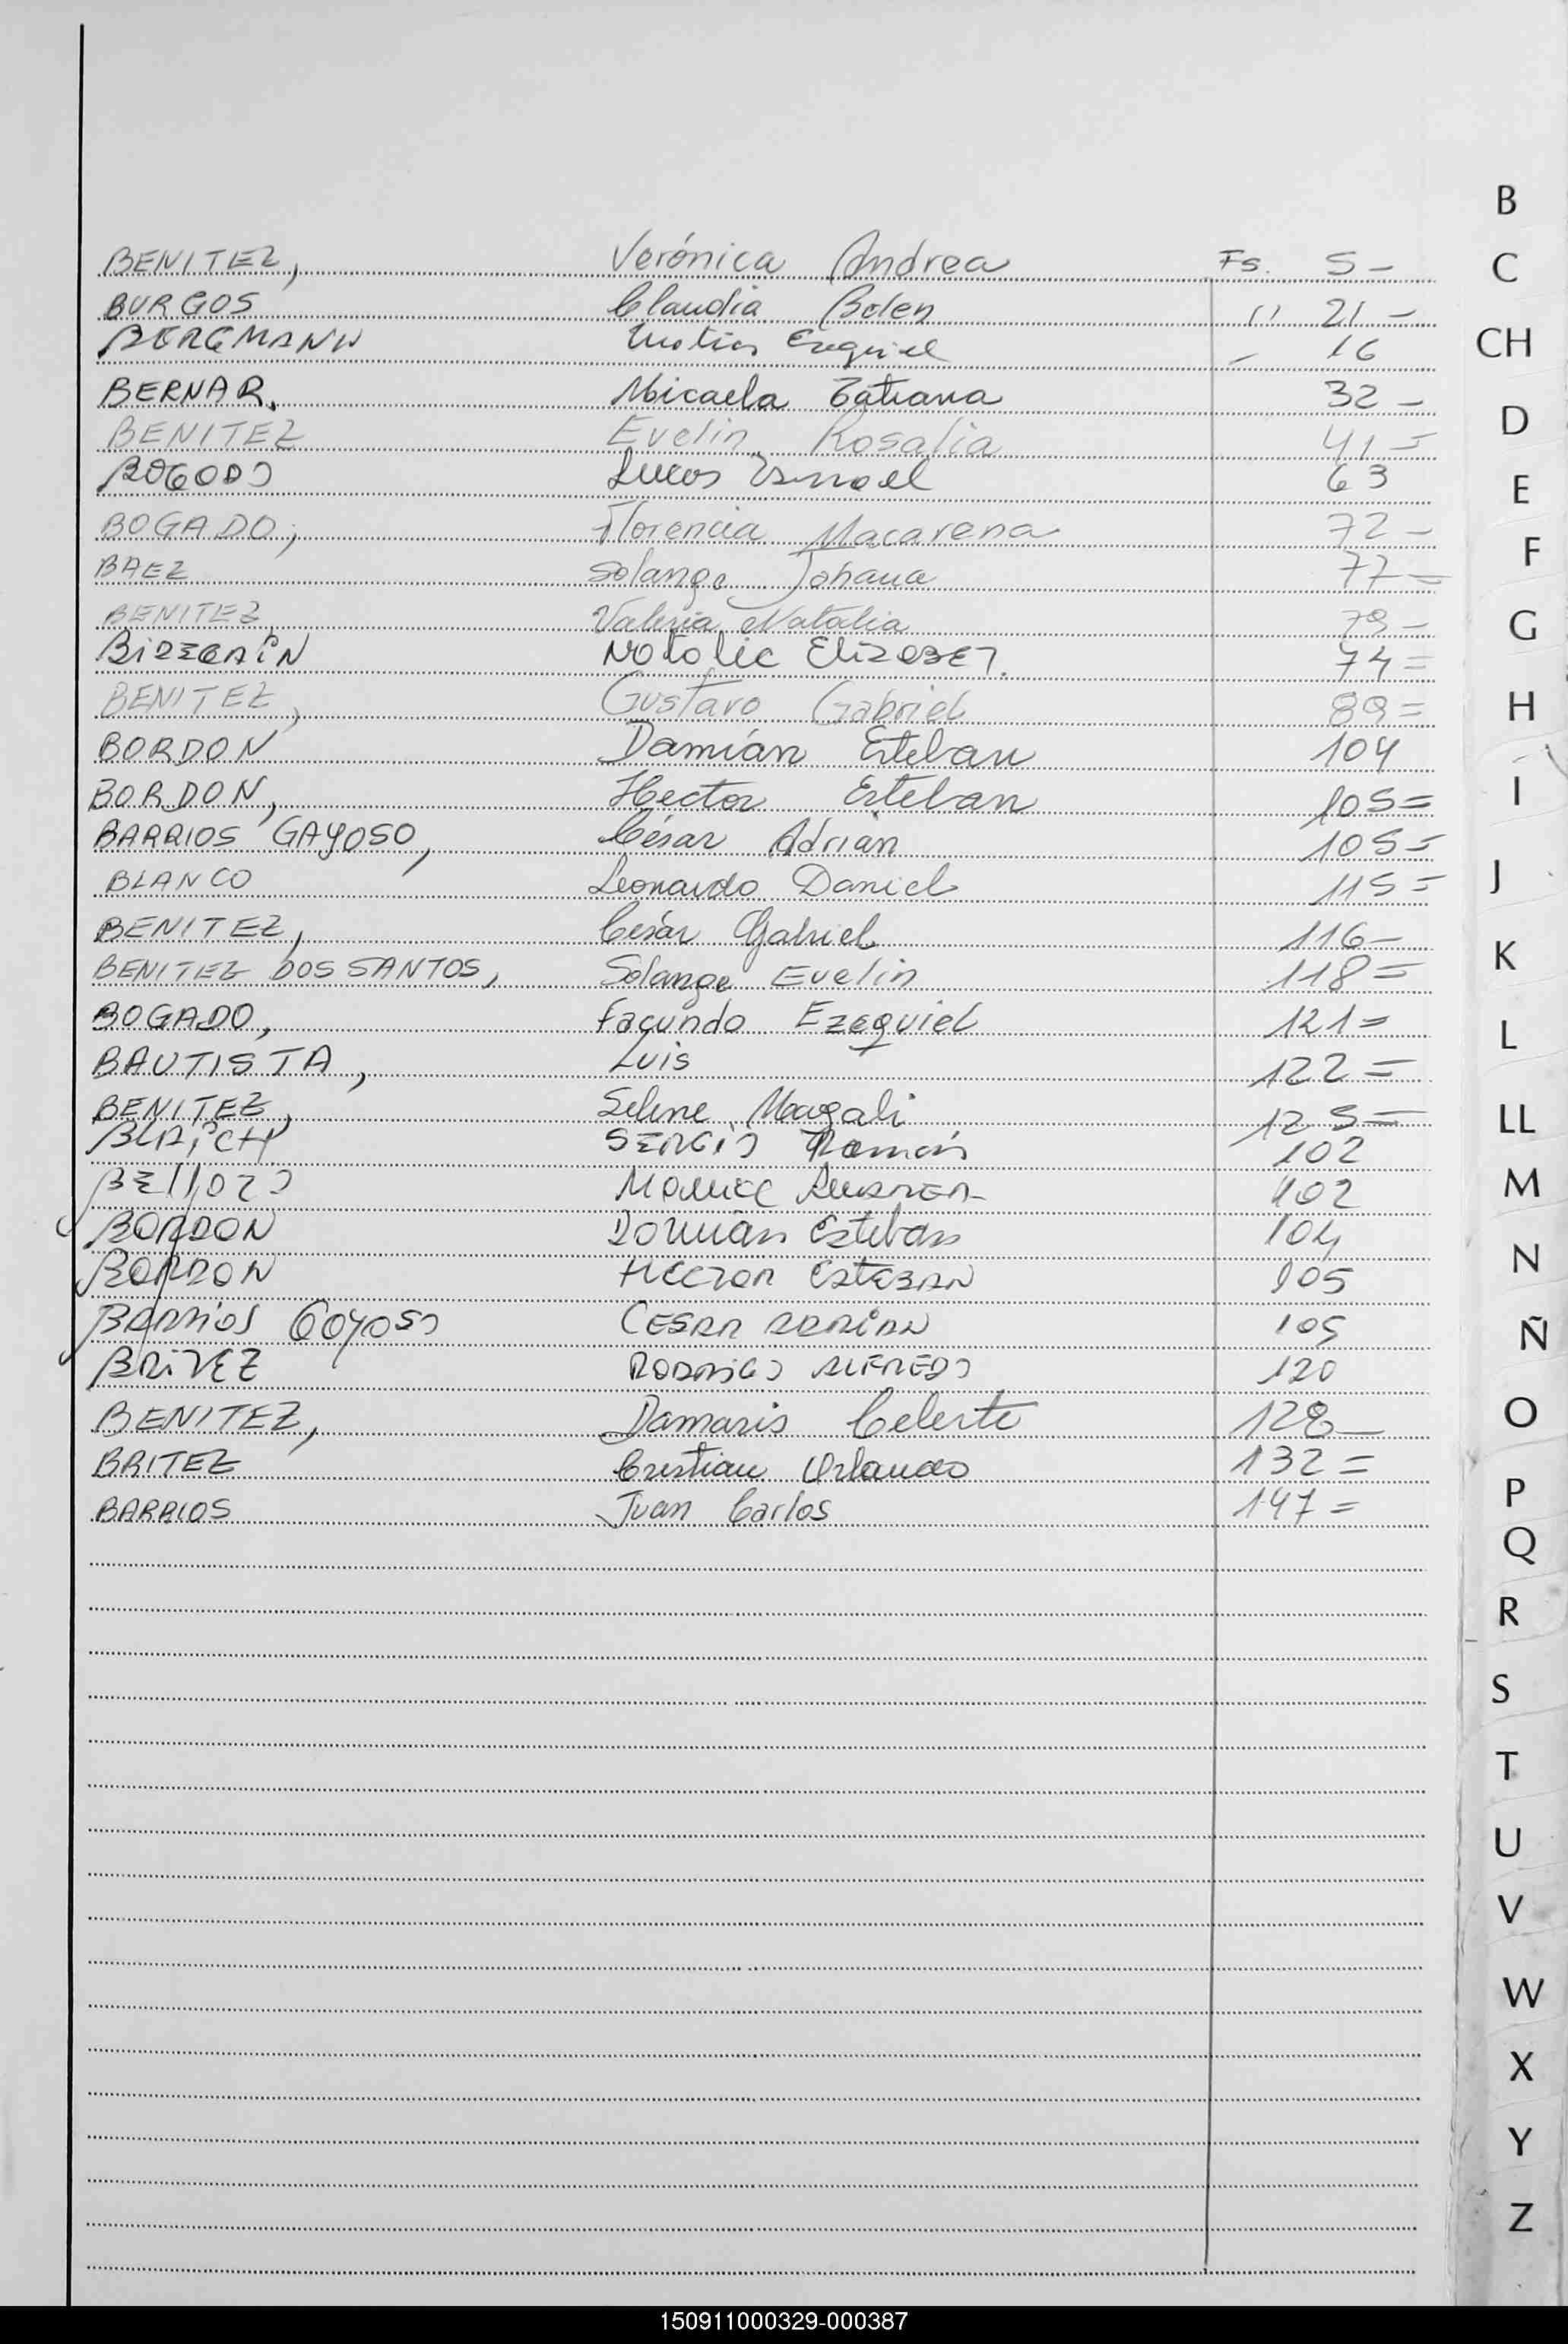 BENITEZ, Verónica Andrea Fs. 5 -
BURGOS Claudia Belen " 21 -
BERGMANN Matias Ezequiel - 16
BERNAR. Micaela Tatiana 32 -
BENITEZ Evelin Rosalia 41 =
BOGADO Lucas Ismael 63
BOGADO, Florencia Macarena 72 -
BAEZ Solange Johana 77 =
BENITEZ, Valeria Natalia 79 -
Natalie Elizabet. 74 =
BENITEZ, Gustavo Gabriel 89 =
BORDON Damián Esteban 104
BORDON, Hector Esteban 105 =
BARRIOS GAYOSO, César Adrián 105 =
BLANCO Leonardo Daniel 115 =
BENITEZ, César Gabriel 116 -
BENITEZ DOS SANTOS, Solange Evelin 118 =
BOGADO, Facundo Ezequiel 121 =
BAUTISTA, Luis 122 =
BENITEZ, Selene Magali 125 =
SERGIO Ramón 102
102
BORDON Damián Esteban 104
BORDON HECTOR ESTEBAN 105
BARRIOS GAYOSO CESAR ADRIAN 105
RODRIGO ALFREDO 120
BENITEZ, Damaris Celeste 128 -
BRITEZ Cristian Orlando 132 =
BARRIOS Juan Carlos 147 =
B
C
CH
D
E
F
G
H
I
J
K
L
LL
M
N
Ñ
O
P
Q
R
S
T
U
V
W
X
Y
Z
150911000329-000387